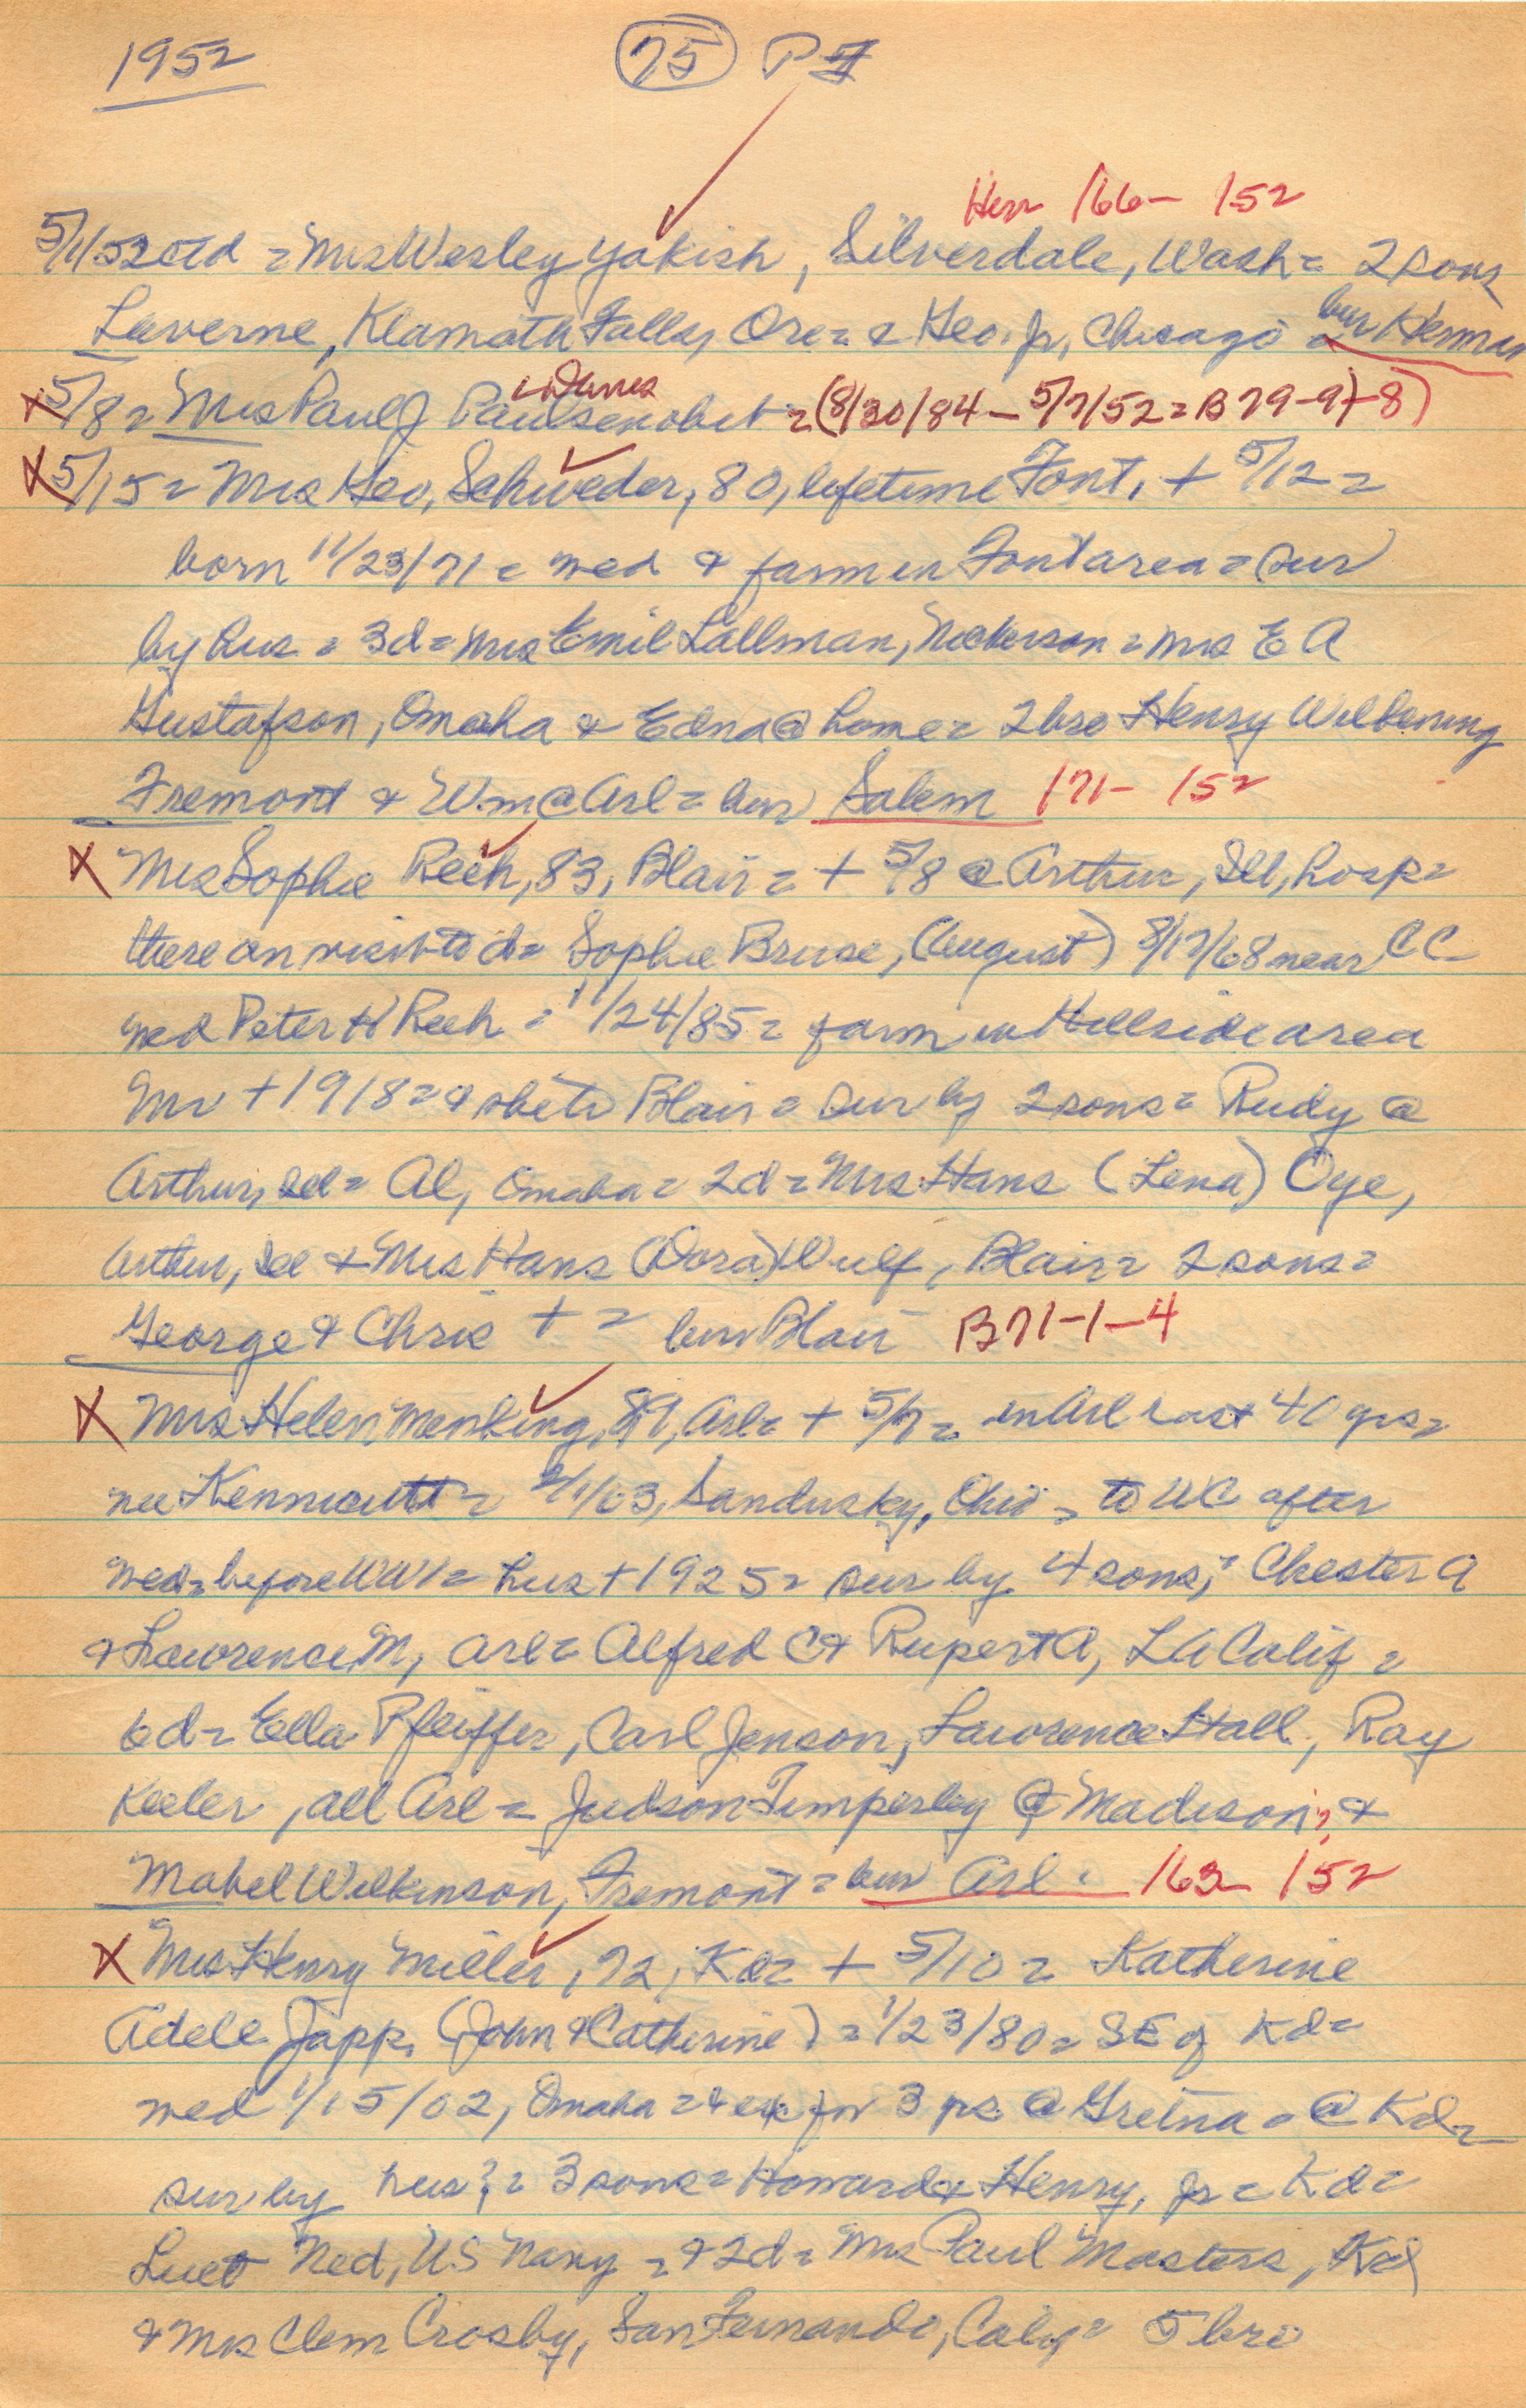 1952 (75) P II
Herr 166 - 152
5/1/52 ctd = Mrs Wesley Yakish, Silverdale, Wash = 2 sons
Laverne, Klamath Falls, Ore = & Geo. Jr, Chicago = bur Herman
X 5/8 = Mrs Paul J Paulsen obit = (8/30/84 - 5/7/52 = B 79-9-8)
X 5/15 = Mrs Geo, Schweder, 80, lifetime Font, + 5/12 =
born 11/23/71 = wed & farm in Font area = sur
by hus = 3d = Mrs Emil Lallman, Nickerson = Mrs E A
Gustafson, Omaha & Edna @ home = 2 bro Henry Wilkening
Fremont & Wm @ Arl = bur Salem 171 - 152
X Mrs Sophie Reeh, 83, Blair = + 5/8 @ Arthur, Ill, hosp =
there on visit to d = Sophie Bruse, (August) 8/17/68 near CC
wed Peter H Reeh = 11/24/85 = farm in Hillside area
Mr + 1918 = & she to Blair = sur by 2 sons = Rudy @
Arthur, Ill = Al, Omaha = 2d = Mrs Hans (Lena) Oye,
Arthur, Ill & Mrs Hans (Dora) Wulf, Blair = 2 sons =
George & Chris + = bur Blair B 71-1-4
X Mrs Helen Menking, 89, Arl = + 5/7 = in Arl last 40 yrs =
nee = 2/1/63, Sandusky, Ohio = to WC after
wed = before WW1 = hus + 1925 = sur by 4 sons, = Chester A
& Lawrence M, Arl = Alfred C & Rupert A, LA Calif =
6d = Ella Pfeiffer, Carl Jenson, Lawrence Hall, Ray
Keeler, all Arl = Judson Timperley @ Madison, &
Mabel Wilkinson, Fremont = bur Arl. 163 - 152
X Mrs Henry Miller, 72, Kd = + 5/10 = Katherine
Adele Japp, (John & Catherine) = 1/23/80 = SE of Kd =
wed 1/15/02, Omaha = & ex for 3 yrs @ Gretna = @ Kd =
sur by hus? = 3 sons = Howard & Henry, Jr = Kd =
Luet Ned, US Navy = & 2d = Mrs Paul Masters, Kd
& Mrs Clem Crosby, San Fernando, Calif = 5 bro